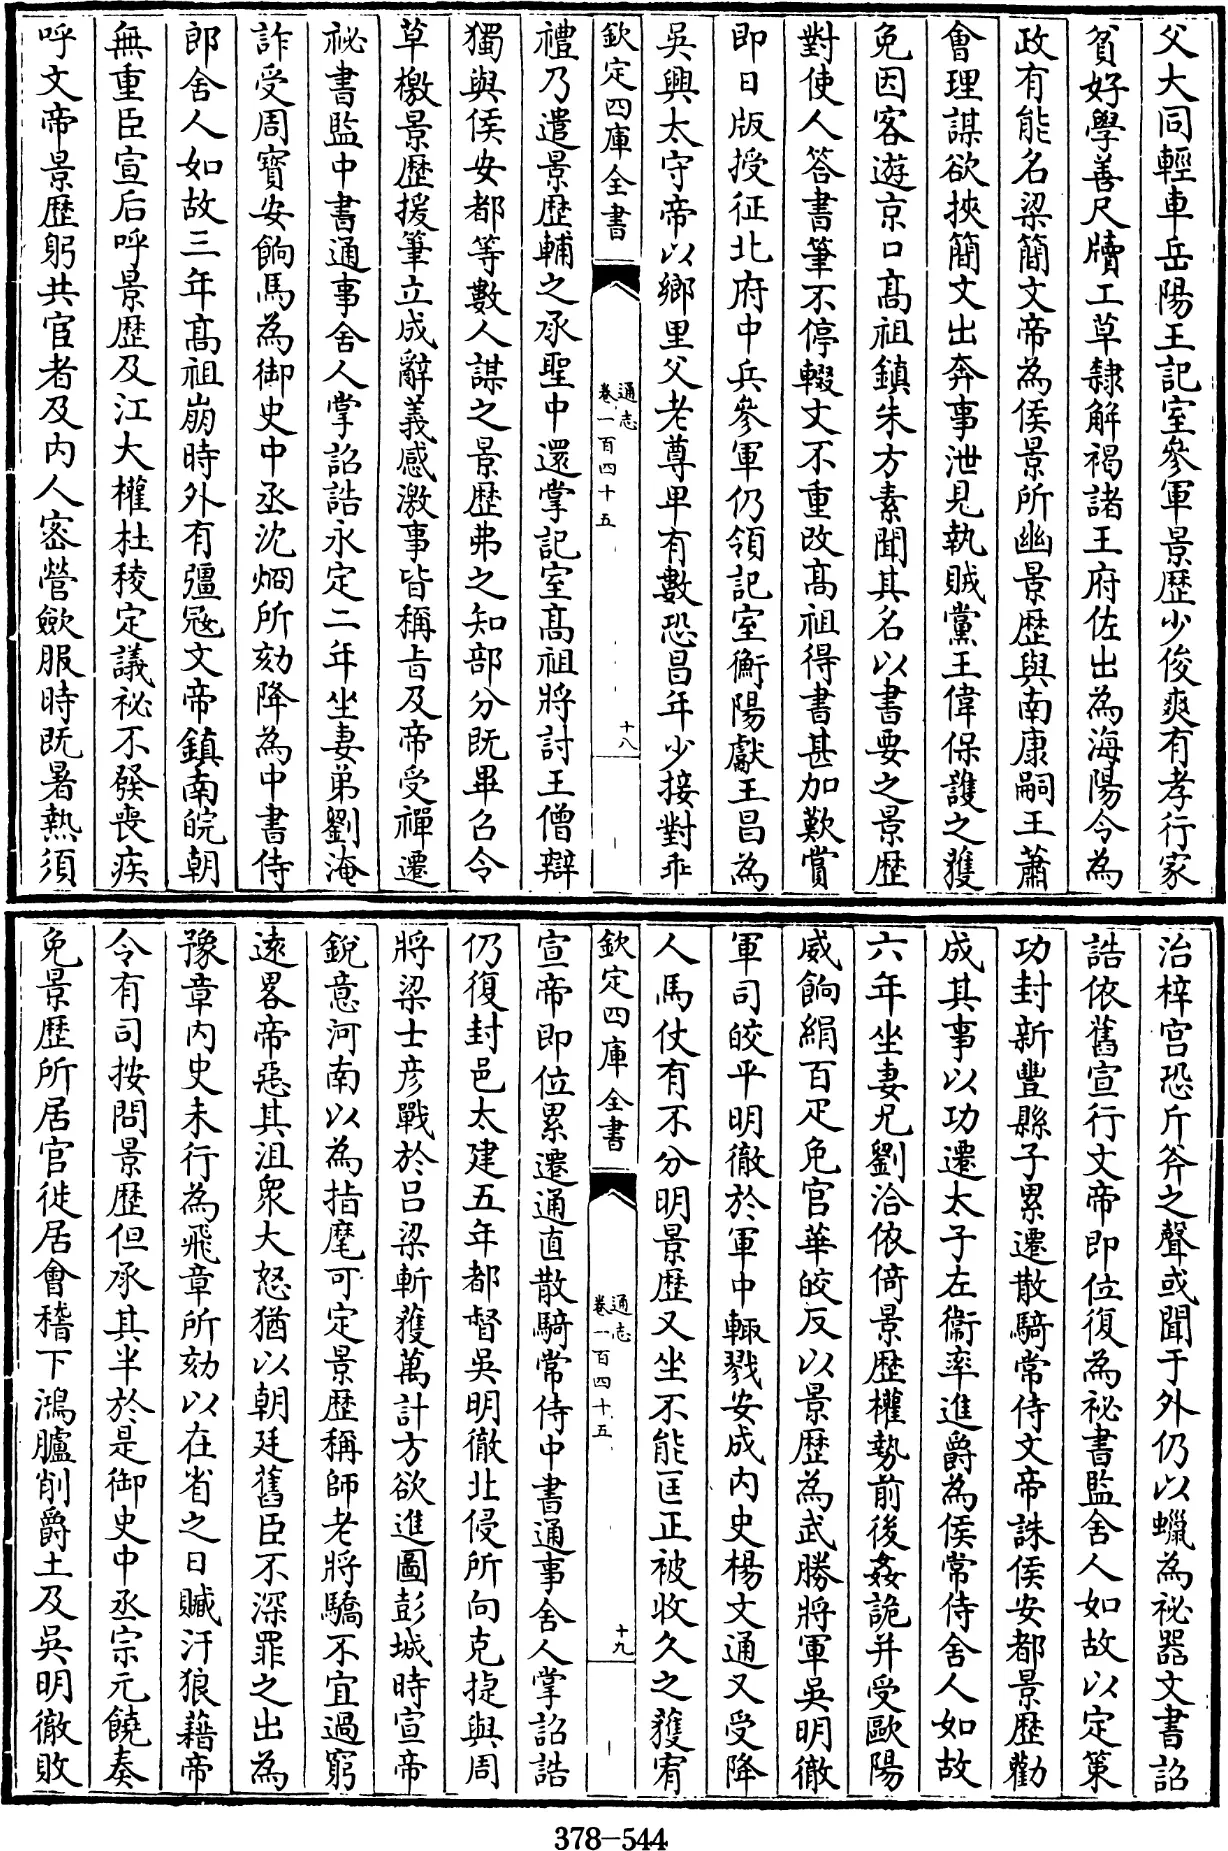 父大同輕車岳陽王記室參軍景歴少俊爽有孝行家
貧好學善尺牘工草隸解褐諸王府佐出為海陽令為
政有能名梁簡文帝為侯景所幽景歴與南康嗣王蕭
㑹理謀欲挾簡文出奔事泄見執賊黨王偉保護之獲
免因客遊京口髙祖鎮朱方素聞其名以書要之景歴
對使人答書筆不停輟文不重改髙祖得書甚加歎賞
即日版授征北府中兵參軍仍領記室衡陽獻王昌為
吳興太守帝以鄉里父老尊卑有數恐昌年少接對乖
欽定四庫全書
通志
卷一百四十五
十八
禮乃遣景歴輔之承聖中還掌記室髙祖將討王僧辯
獨與侯安都等數人謀之景歴弗之知部分既畢召令
草檄景歴援筆立成辭義感激事皆稱㫖及帝受禪遷
祕書監中書通事舍人掌詔誥永定二年坐妻弟劉淹
詐受周寳安餉馬為御史中丞沈烱所劾降為中書侍
郎舍人如故三年髙祖崩時外有彊冦文帝鎮南皖朝
無重臣宣后呼景歴及江大權杜稜定議祕不發喪疾
呼文帝景歴躬共宦者及内人宻營歛服時既暑熱須
治梓宫恐斤斧之聲或聞于外仍以蠟為祕器文書詔
誥依舊宣行文帝即位復為祕書監舍人如故以定䇿
功封新豐縣子累遷散騎常侍文帝誅侯安都景歴勸
成其事以功遷太子左衞率進爵為侯常侍舍人如故
六年坐妻兄劉洽依倚景歴權勢前後姦詭并受歐陽
威餉絹百疋免官華皎反以景歴為武勝將軍吳明徹
軍司皎平明徹於軍中輙戮安成内史楊文通又受降
人馬仗有不分明景歴又坐不能匡正被收久之獲宥
欽定四庫全書
通志
卷一百四十五
十九
宣帝即位累遷通直散騎常侍中書通事舍人掌詔誥
仍復封邑太建五年都督吳明徹北侵所向克捷與周
將梁士彦戰於吕梁斬獲萬計方欲進圖彭城時宣帝
銳意河南以為指麾可定景歴稱師老將驕不宜過窮
逺畧帝惡其沮衆大怒猶以朝廷舊臣不深罪之出為
豫章内史未行為飛章所劾以在省之日贓汙狼藉帝
令有司按問景歴但承其半於是御史中丞宗元饒奏
免景歴所居官徙居㑹稽下鴻臚削爵土及吳明徹敗
378-544